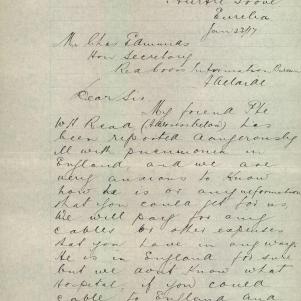 Eurelia
Jan 22/17
Mr Chas Edmunds
Hon Secretary
Red Cross Information Bureau
Adelaide
Dear Sir
My friend Pte
W H Read (address below) has
been reported dangerously
ill with pneumonia in
England, and we are
very anxious to know
how he is or any information
that you could get for us,
We will pay for any
cables or other expenses
that you have in any way.
He is in England for sure
but we dont know what
hospital, if you could
cable to England and